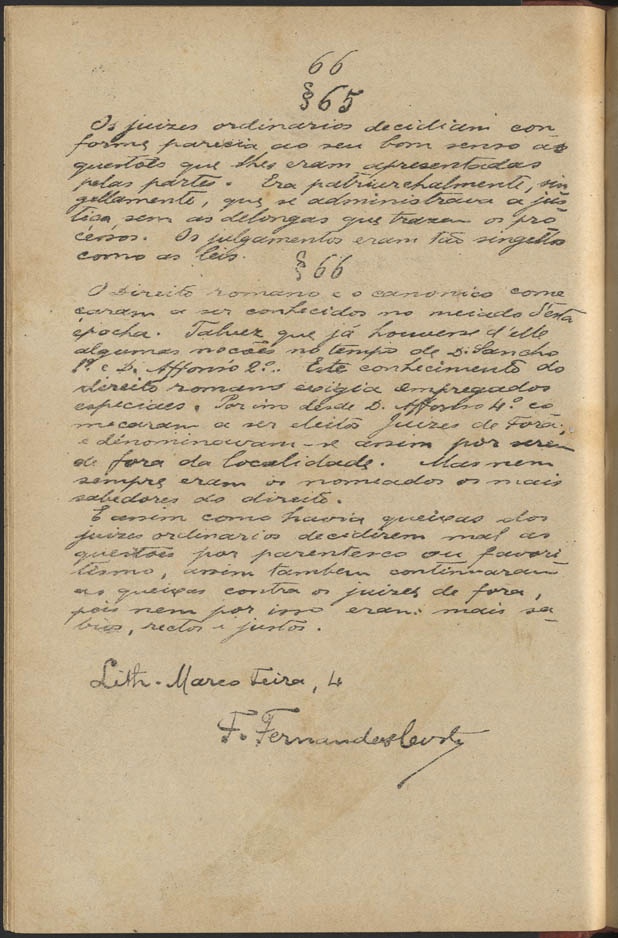 66
§65
Os juizes ordinarios decidiam con
forme parecia ao seu bom senso ás
questões que lhes eram apresentadas
pelas partes. Era patriarchalmente, sin
gellamente, que se administrava a jus
tiça sem as delongas que trazem os pro
cessos. Os julgamentos eram tão singellos
como as leis.
§66
O Direito romano e o canonico come
çaram a ser conhecidos no meiado d'esta
épocha. Talvez que já houvesse d'elle
algumas noções no tempo de D. Sancho
1º e D. Affonso 2º. Este conhecimento do
direito romano exigia empregados
especiaes. Por isso desde D. Affonso 4º co
meçaram a ser eleitos juizes de fóra,
e denominavam-se assim por serem
de fora da localidade. Mas nem
sempre eram os nomeados os mais
sabedores do direito.
E assim como havia queixas dos
juizes ordinarios decidirem mal as
questões por parentesco ou favori
tismo, assim tambem continuaram
as queixas contra os juizes de fora,
pois nem por isso eram mais sa-
bios, rectos e justos.
Lith. Marco Feira, 4
F. Fernandes Costa